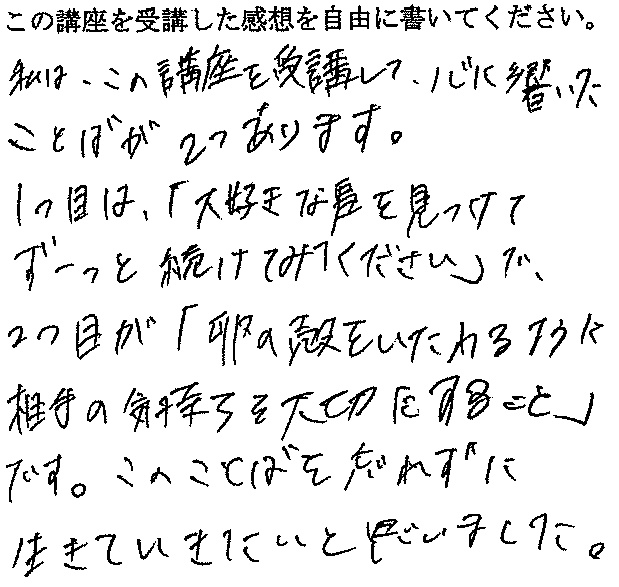 この講座を受講した感想を自由に書いてください。
私は、この講座を受講して、心に響いた
ことばが2つあります。
1つ目は、「大好きな事を見つけて
ずーっと続けてみてください」で、
2つ目が「卵の殻をいたわるように
相手の気持ちを大切にすること」
です。このことばを忘れずに
生きていきたいと思いました。